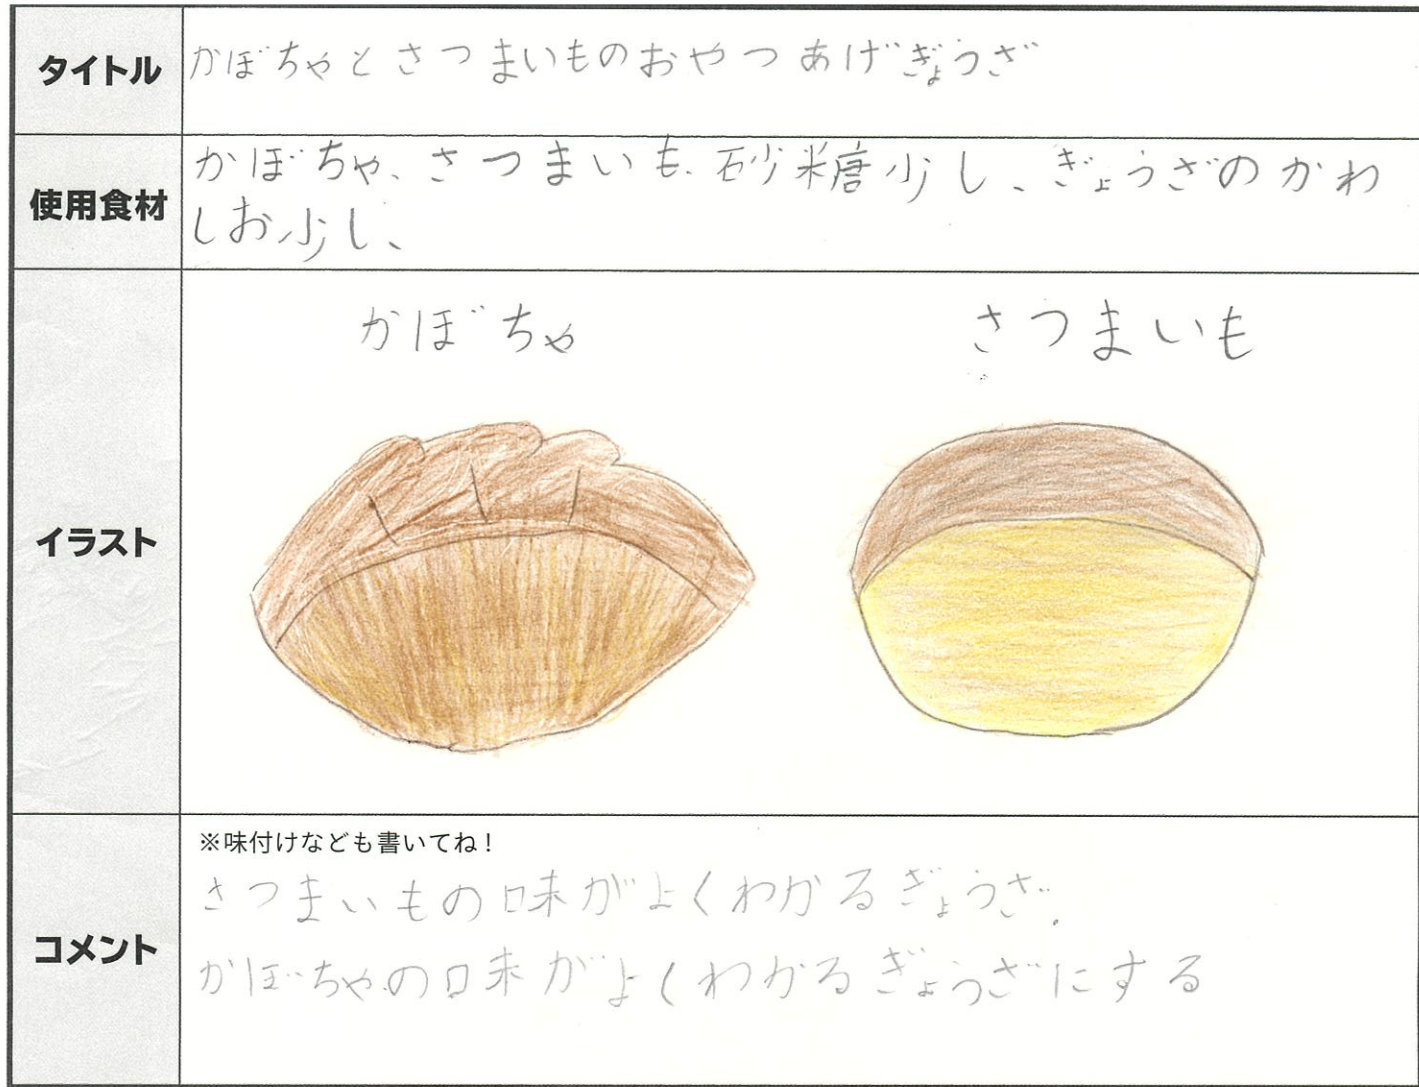 タイトル
かぼちゃとさつまいものおやつあげぎょうざ
使用食材
かぼちゃ、さつまいも、砂糖少し、ぎょうざのかわ
しお少し、
イラスト
かぼちゃ
さつまいも
コメント
※味付けなども書いてね!
さつまいもの味がよくわかるぎょうざ。
かぼちゃの味がよくわかるぎょうざにする